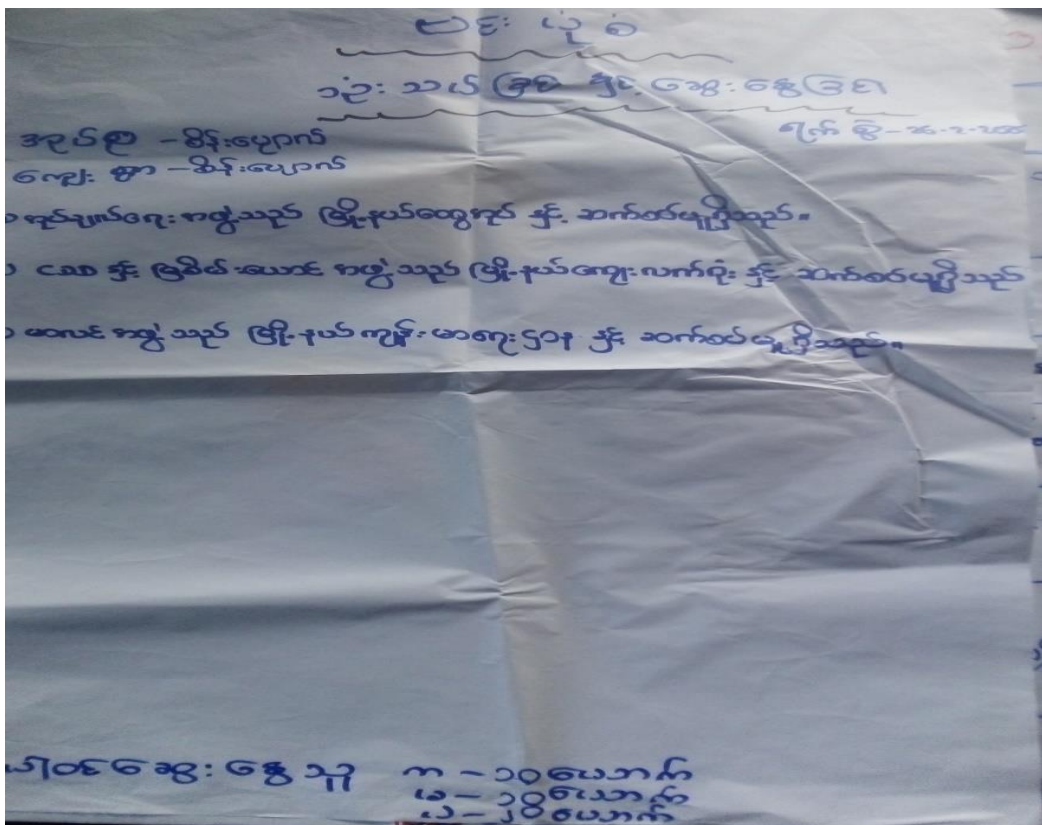 ဗင်းယုံစံ
သုံးသပ်ခြင်း နှင့် ဆွေးနွေးခြင်း
အုပ်စု - စိန်းပျောက်
ကျေးရွာ - စိန်းပျောက်
အုပ်ချုပ်ရေးအဖွဲ့သည် မြို့နယ်ထွေအုပ် နှင့် ဆက်စပ်မှုရှိသည်။
CDD နှင့် မြစိမ်းရောင် အဖွဲ့သည် မြို့နယ်ကျေးလက်ရုံး နှင့် ဆက်စပ်မှုရှိသည်
မလင အဖွဲ့သည် မြို့နယ်ကျန်းမာရေးဌာန နှင့် ဆက်စပ်မှုရှိသည်။
ပါဝင်ဆွေးနွေးသူ က - ၁၀ ယောက်
မ - ၁၃ ယောက်
ယောက်